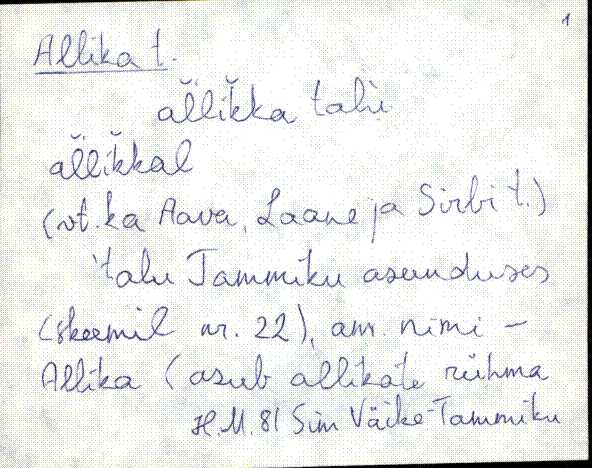 1
Allika t.
ăĺlĭkka talu
ăĺlĭkkal
(vt. ka Aava, Laane ja Sirbi t.)
'talu Tammiku asunduses
(skeemil nr. 22), am. nimi –
Allika (asub allikate rühma
H.M. 81 Sim Väike-Tammiku